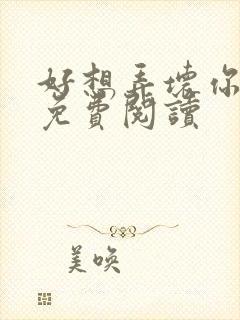 好想弄壞你
免費閱讀
美喚